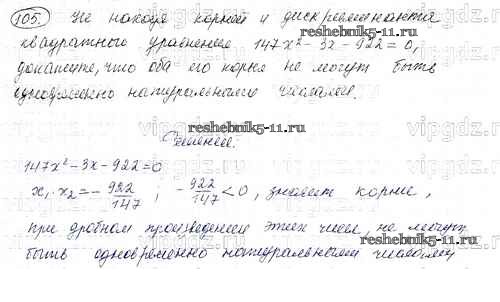 105. Не находя корней и дискриминанта
квадратного уравнения 147x² - 3x - 922 = 0,
докажите, что оба его корня не могут быть
одновременно натуральными числами.
reshebnik5-11.ru
Решение.
147x² - 3x - 922 = 0
x₁ · x₂ = - 922/147 ; - 922/147 < 0, значит корни,
при дробном произведении этих чисел, не могут
быть одновременно натуральными числами
reshebnik5-11.ru